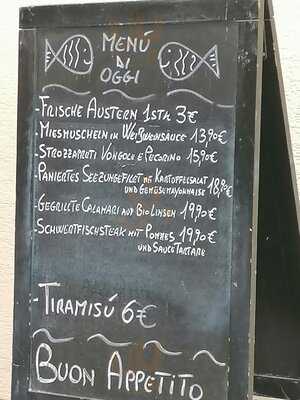 MENÚ
DI
OGGI
- FRISCHE AUSTERN 1STK 3€
- MIESMUSCHELN IN WEIßWEINSAUCE 13,90€
- STROZZAPRETI VONGOLE E PECORINO 15,90€
- PANIERTES SEEZUNGEFILET MIT KARTOFFELSALAT
UND GEMÜSEMAYONNAISE 18,90€
- GEGRILLTE CALAMARI AUF BIO LINSEN 19,90€
- SCHWERTFISCHSTEAK MIT POMMES 19,90€
UND SAUCE TARTARE
- TIRAMISÚ 6€
BUON APPETITO